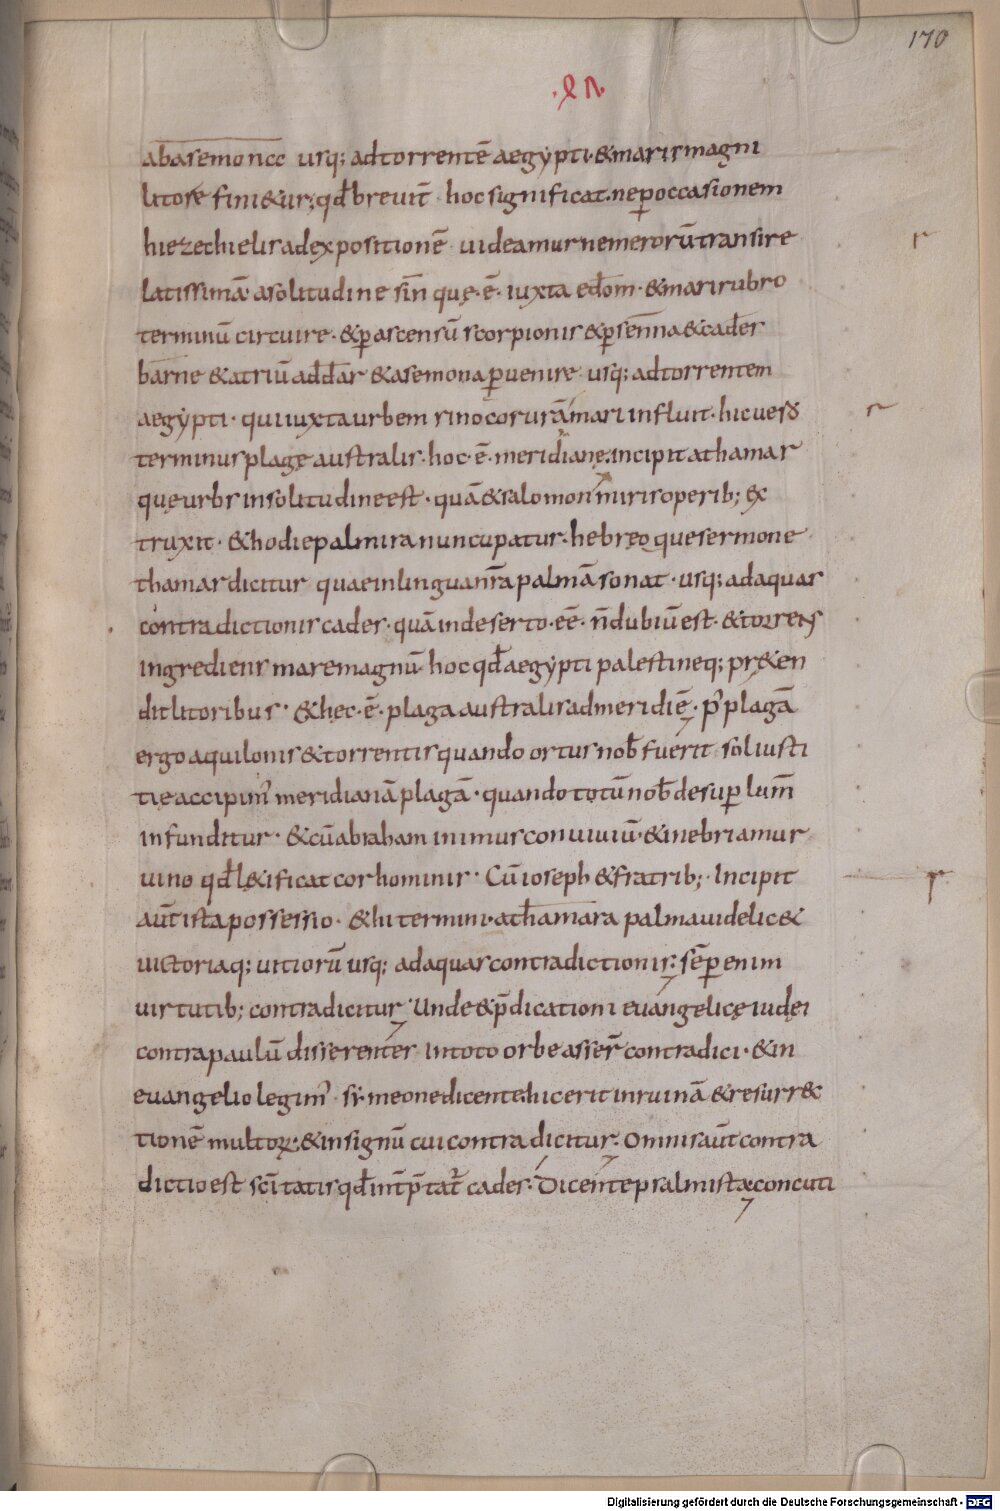 170
abasemonae usq; adtorrentē aegypti·&marismagni
litore fini&ur; qđ breuit̄ hoc significat. neꝑoccasionem
hiezechielis adexpositionē uideamur nemerorū transire
latissimā asolitudine sin̄ quę·ē· iuxta edom·&marirubro
terminū circuire·&ꝑ ascensū scorpionis &ꝑsenna&cades
barne &atriū addar &asemona ꝑuenire usq; adtorrentem
aegypti· qui iuxta urbem rinocorurā mari influit· hic uero
terminus plagę australis· hoc·ē· meridianę. incipit athamar
quę urbs insolitudine est· quā &salomon miris operib; ex
truxit· &hodie palmira nuncupatur· hebręo que sermone
thamar dicitur quae inlingua nr̄a palmā sonat· usq; adaquas
contradictionis cades· quā indeserto·eē· n̄ dubiū est·&torrens
ingrediens mare magnū hoc qđ aegypti palestineq; pręten
dit litoribus· &hęc·ē· plaga australis admeridiē· p̄ plagā
ergo aquilonis &torrentis quando ortus nob̄ fuerit sol iusti
tię accipim' meridianā plagā· quando totū nob̄ desuꝑ lum̄
infunditur· &cū abraham inimus conuiuiū·&inebriamur
uino qđ lętificat cor hominis· Cū ioseph &fratrib;· Incipit
aut̄ ista possessio· &hi termini· athamara palma uidelic&
uictoriaq; uitiorū usq; adaquas contradictionis; sēꝑ enim
uirtutib; contradicitur· Unde &p̄dicationi euangelicę iudęi
contra paulū disserentes intoto orbe asser̄ contradici·&in
euangelio legim' symeone dicente. hic erit inruinā &resurrec
tionē multoꝝ·&insignū cui contradicitur· Omnis aut̄ contra
dictio est sc̄itatis qđ int̄p̄tat̄ cades· Dicente psalmista concuti